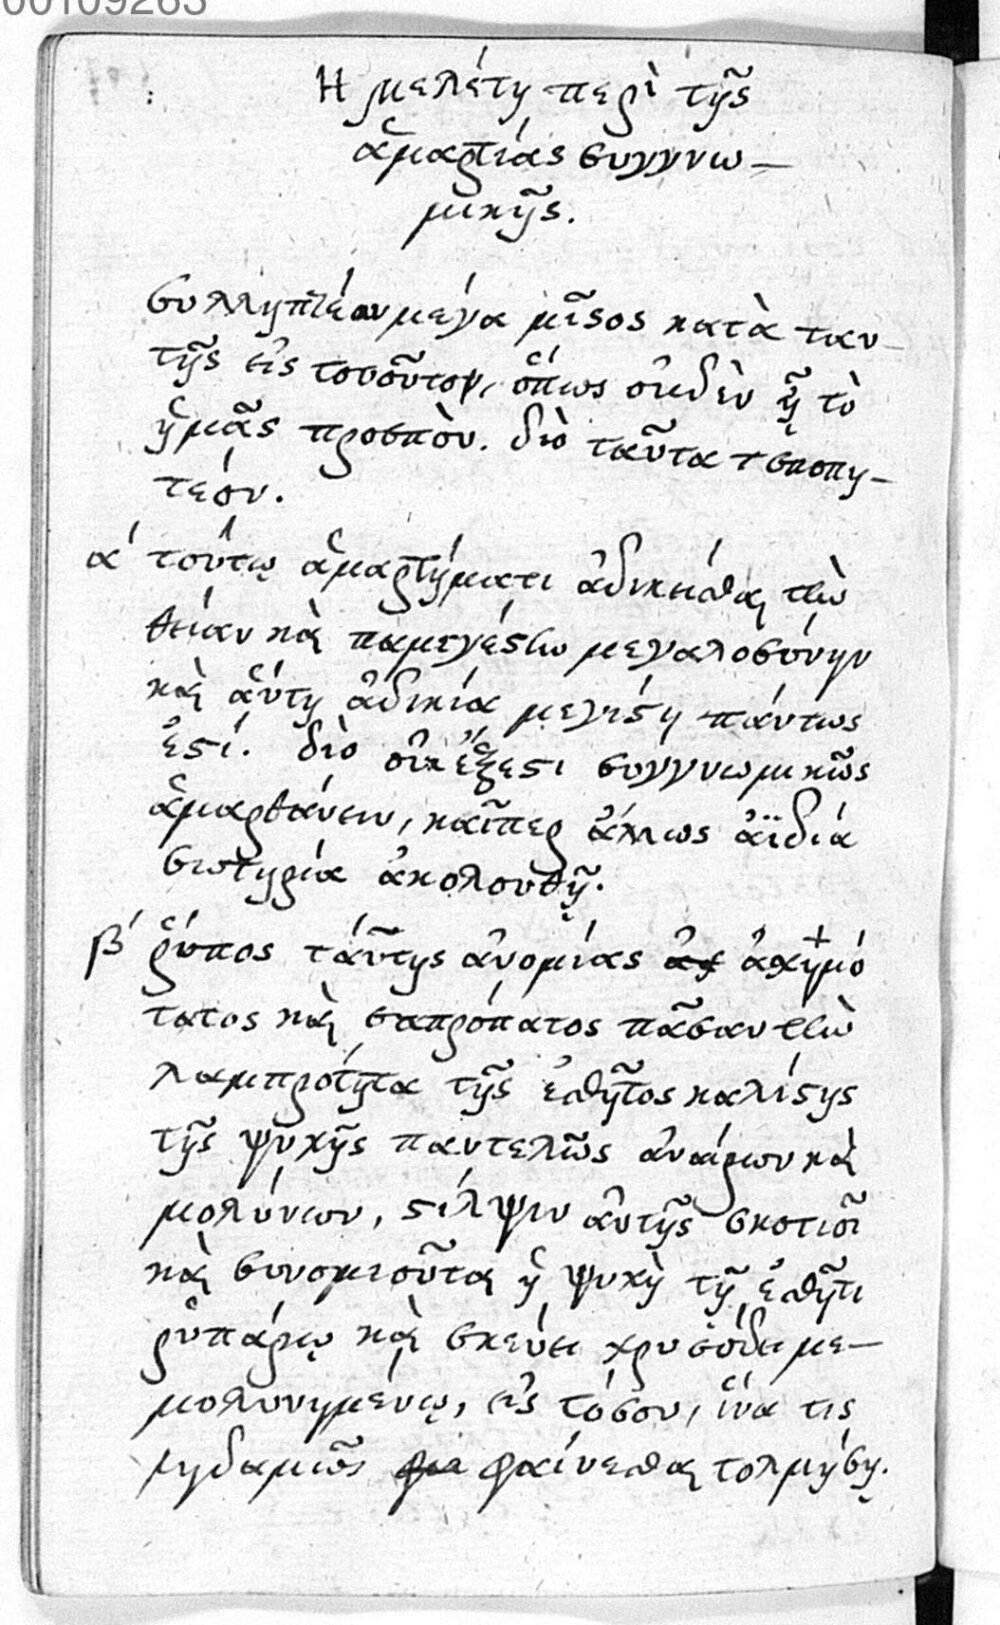 00109263
Η μελέτη περὶ τῆς
ἁμαρτίας συγγνω–
μικῆς.
συλληπτέον μέγα μῖσος κατὰ ταυ–
τῆς εἰς τοσοῦτον, ὅπως οὐδὲν ᾖ τὸ
ἡμᾶς προσπὸν. διὸ ταῦτα
τεόν.
α΄ τούτῳ ἁμαρτήματι ἀδικεῖσθαι τὴν
θείαν καὶ παμμεγέστην μεγαλοσύνην
καὶ ἁύτη ἀδικία μεγίστη πάντως
ἐστί. διὸ οὐκ ἔξεστι συγγνωμικῶς
ἁμαρθάνειν, καῖπερ ἄλλως ἀϊδιά
σωτηρία ἀκολουθῇ.
β΄ ῥύπος τάυτης ἀνομίας ἀσχημό
τατος καὶ σαπρότατος πᾶσαν τὴν
λαμπροτήτα τῆς ἐσθῆτος καλίστης
τῆς ψυχῆς παντελῶς ἀναίρων καὶ
μολύνων, στίλψιν ἀυτῆς σκοτιοῖ
καὶ συνομιοῦται ἡ ψυχὴ τῇ ἐσθῆτι
ῥυπάρῳ καὶ σκεύει χρυσώδει με–
μολυνημένῳ, εἰς τόσον, ἵνα τις
μηδαμῶς φαίνεσθαι τολμήσῃ.